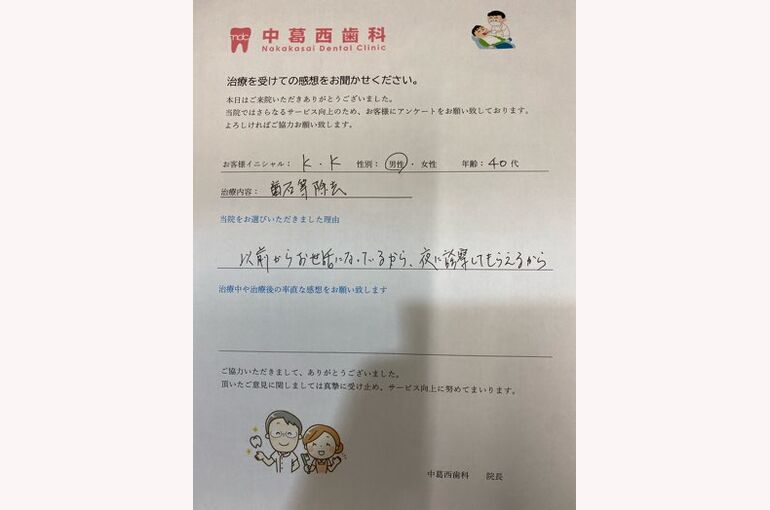 ndc 中葛西歯科
Nakakasai Dental Clinic
治療を受けての感想をお聞かせください。
本日はご来院いただきありがとうございました。
当院ではさらなるサービス向上のため、お客様にアンケートをお願い致しております。
よろしければご協力お願い致します。
お客様イニシャル： K . K 性別： 男性 ・ 女性 年齢：40 代
治療内容： 歯石等除去
当院をお選びいただきました理由
以前からお世話になっているから、夜に診察してもらえるから
治療中や治療後の率直な感想をお願い致します
ご協力いただきまして、ありがとうございました。
頂いたご意見に関しましては真摯に受け止め、サービス向上に努めてまいります。
中葛西歯科 院長